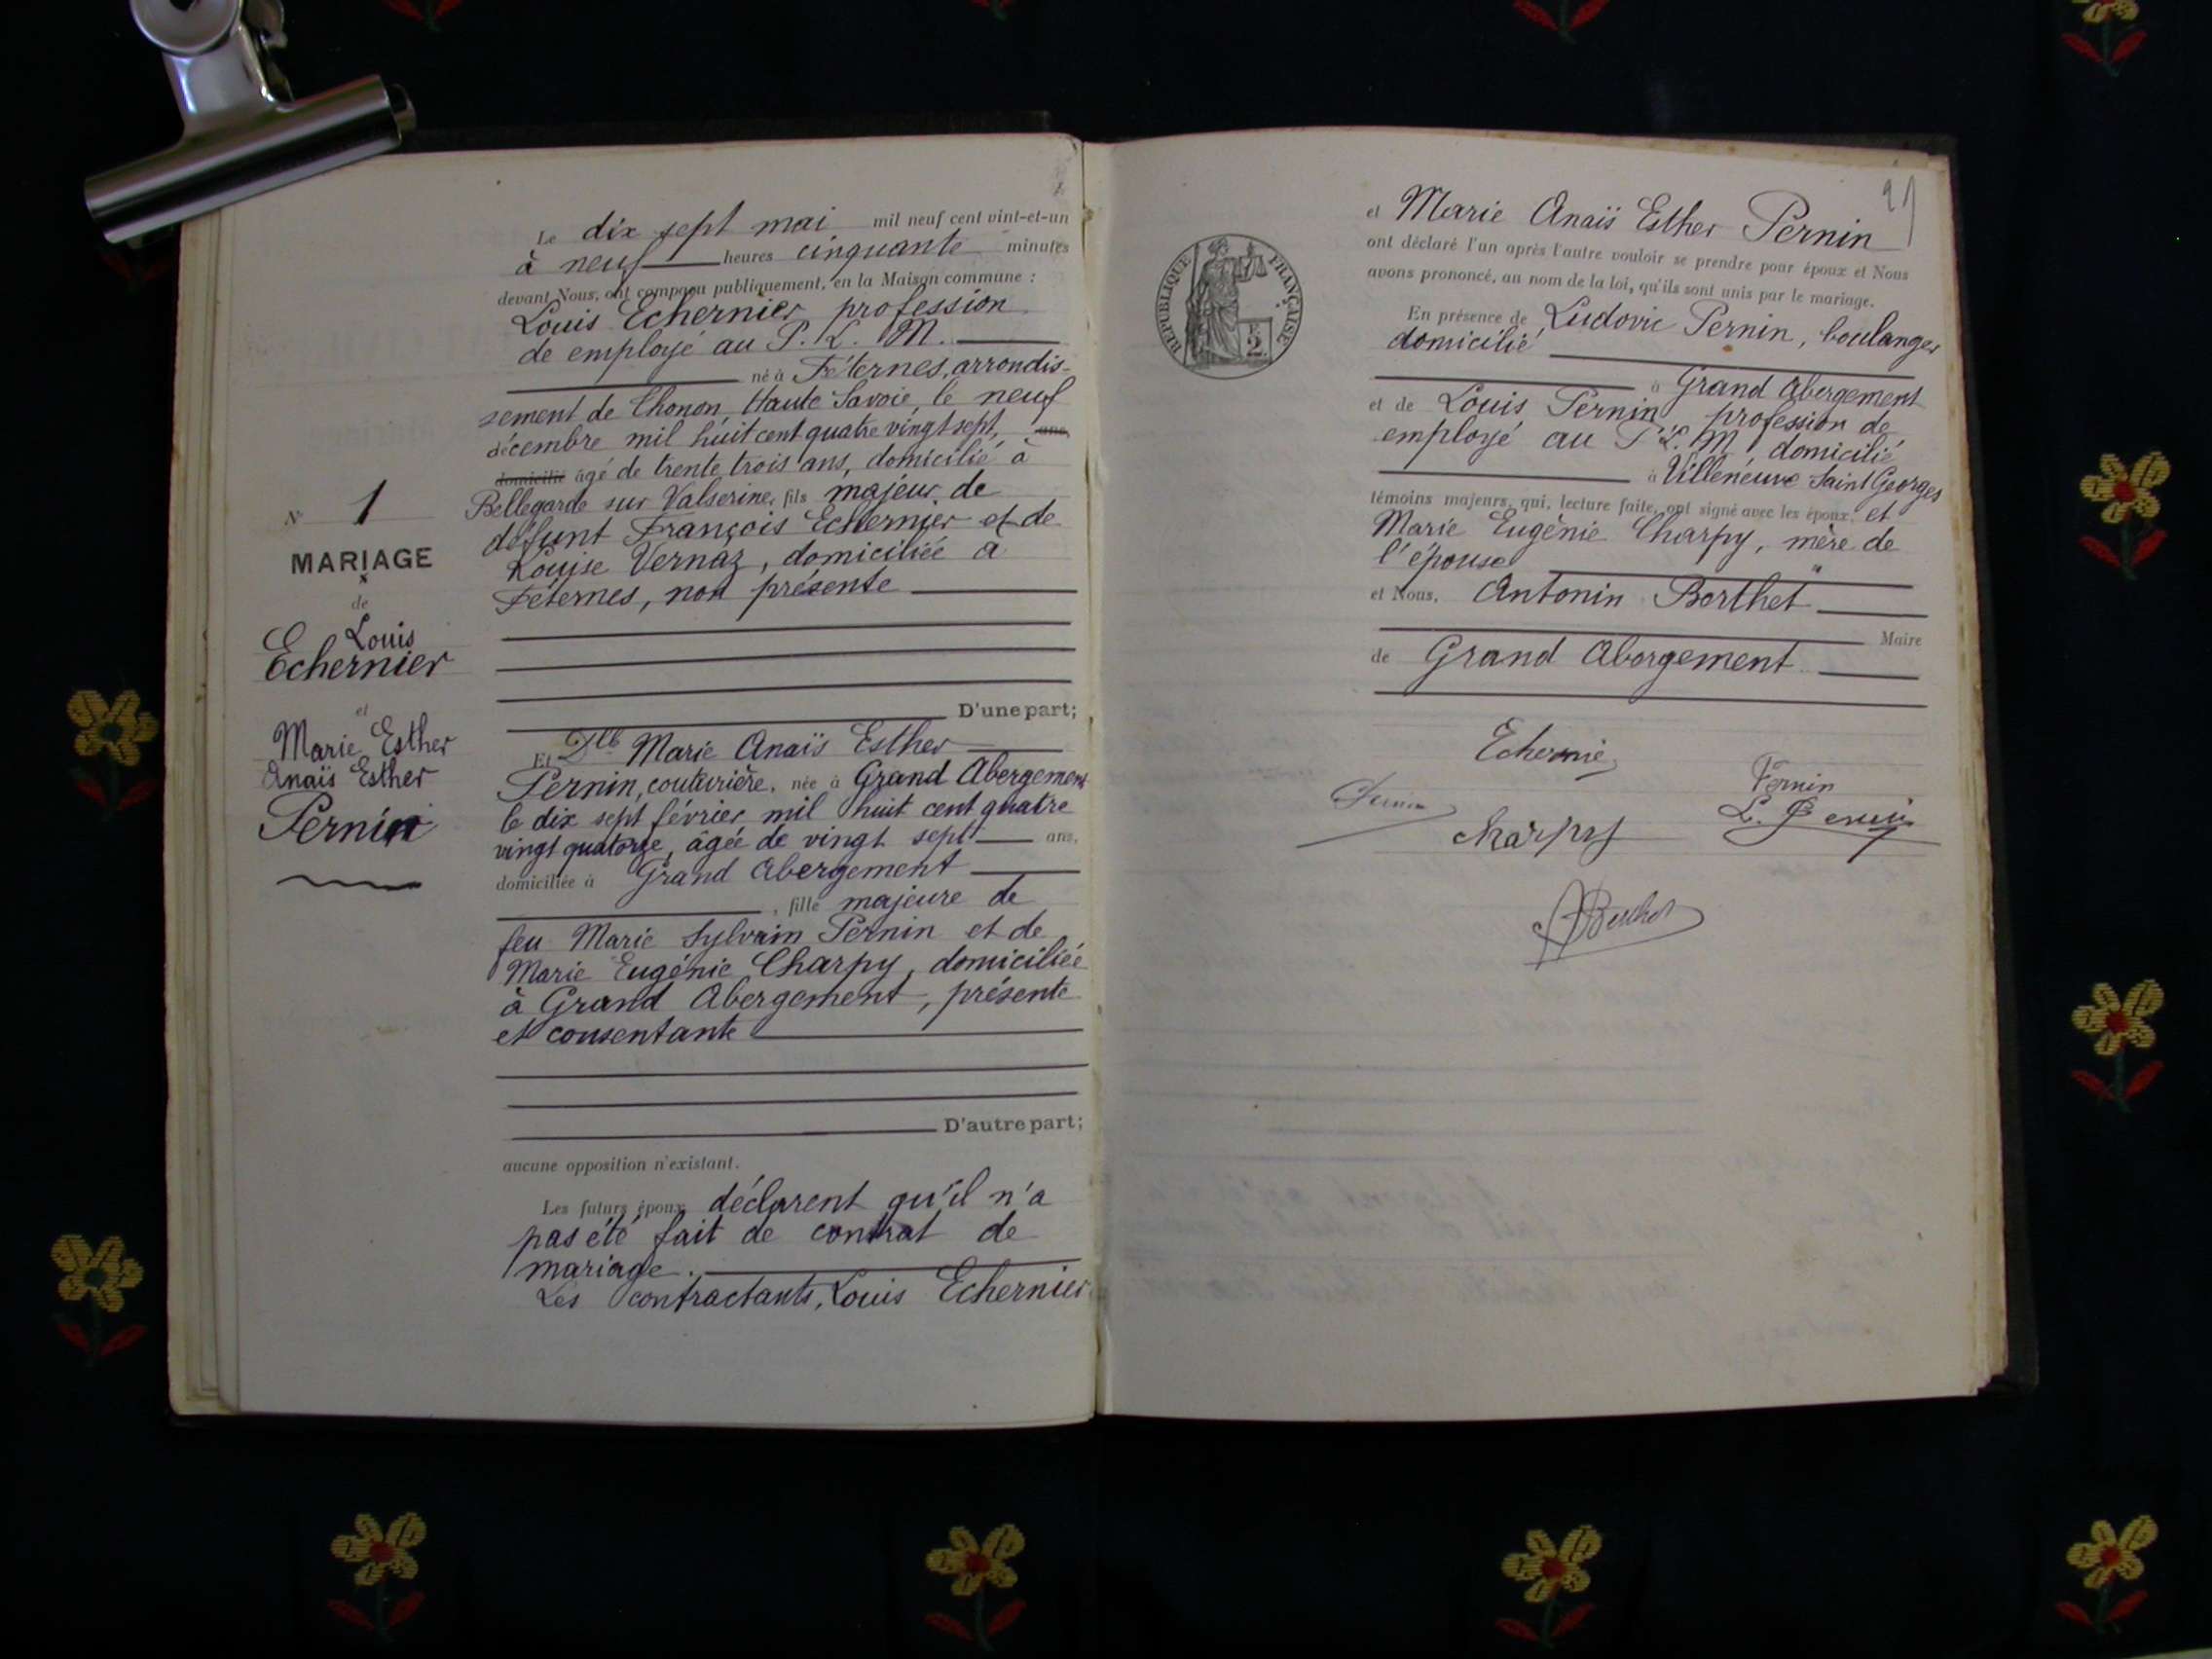 Le dix sept mai mil neuf cent vint-et-un
à neuf heures cinquante minutes
devant Nous, ont comparu publiquement, en la Maison commune :
Louis Echernier profession
de employé au P. L. M.
né à Féternes, arrondis-
sement de Thonon, Haute Savoie, le neuf
décembre mil huit cent quatre vingt sept, ans,
domicilié âgé de trente trois ans, domicilié à
Bellegarde sur Valserine, fils majeur de
défunt François Echernier et de
Louise Vernaz, domiciliée à
Féternes, non présente
D'une part;
Et Dlle Marie Anaïs Esther
Pernin, couturière, née à Grand Abergement
le dix sept février mil huit cent quatre
vingt quatorze, âgée de vingt sept ans,
domiciliée à Grand Abergement
, fille majeure de
feu Marie Sylvain Pernin et de
Marie Eugénie Charpy, domiciliée
à Grand Abergement, présente
et consentante
D'autre part;
aucune opposition n'existant.
Les futurs époux déclarent qu'il n'a
pas été fait de contrat de
mariage.
Les contractants, Louis Echernier
N° 1
MARIAGE
de
Louis
Echernier
et
Marie Esther
Anaïs Esther
Pernin
21
et Marie Anaïs Esther Pernin
ont déclaré l'un après l'autre vouloir se prendre pour époux et Nous
avons prononcé, au nom de la loi, qu'ils sont unis par le mariage.
En présence de Ludovic Pernin, boulanger
domicilié
à Grand Abergement
et de Louis Pernin, profession de
employé au P. L. M, domicilié
à Villeneuve Saint Georges
témoins majeurs, qui, lecture faite, ont signé avec les époux, et
Marie Eugénie Charpy, mère de
l'épouse
et Nous, Antonin Berthet
Maire
de Grand Abergement
RÉPUBLIQUE FRANÇAISE
2
Echernie
Pernin
Pernin
L. Pernin
Charpy
ABerthet